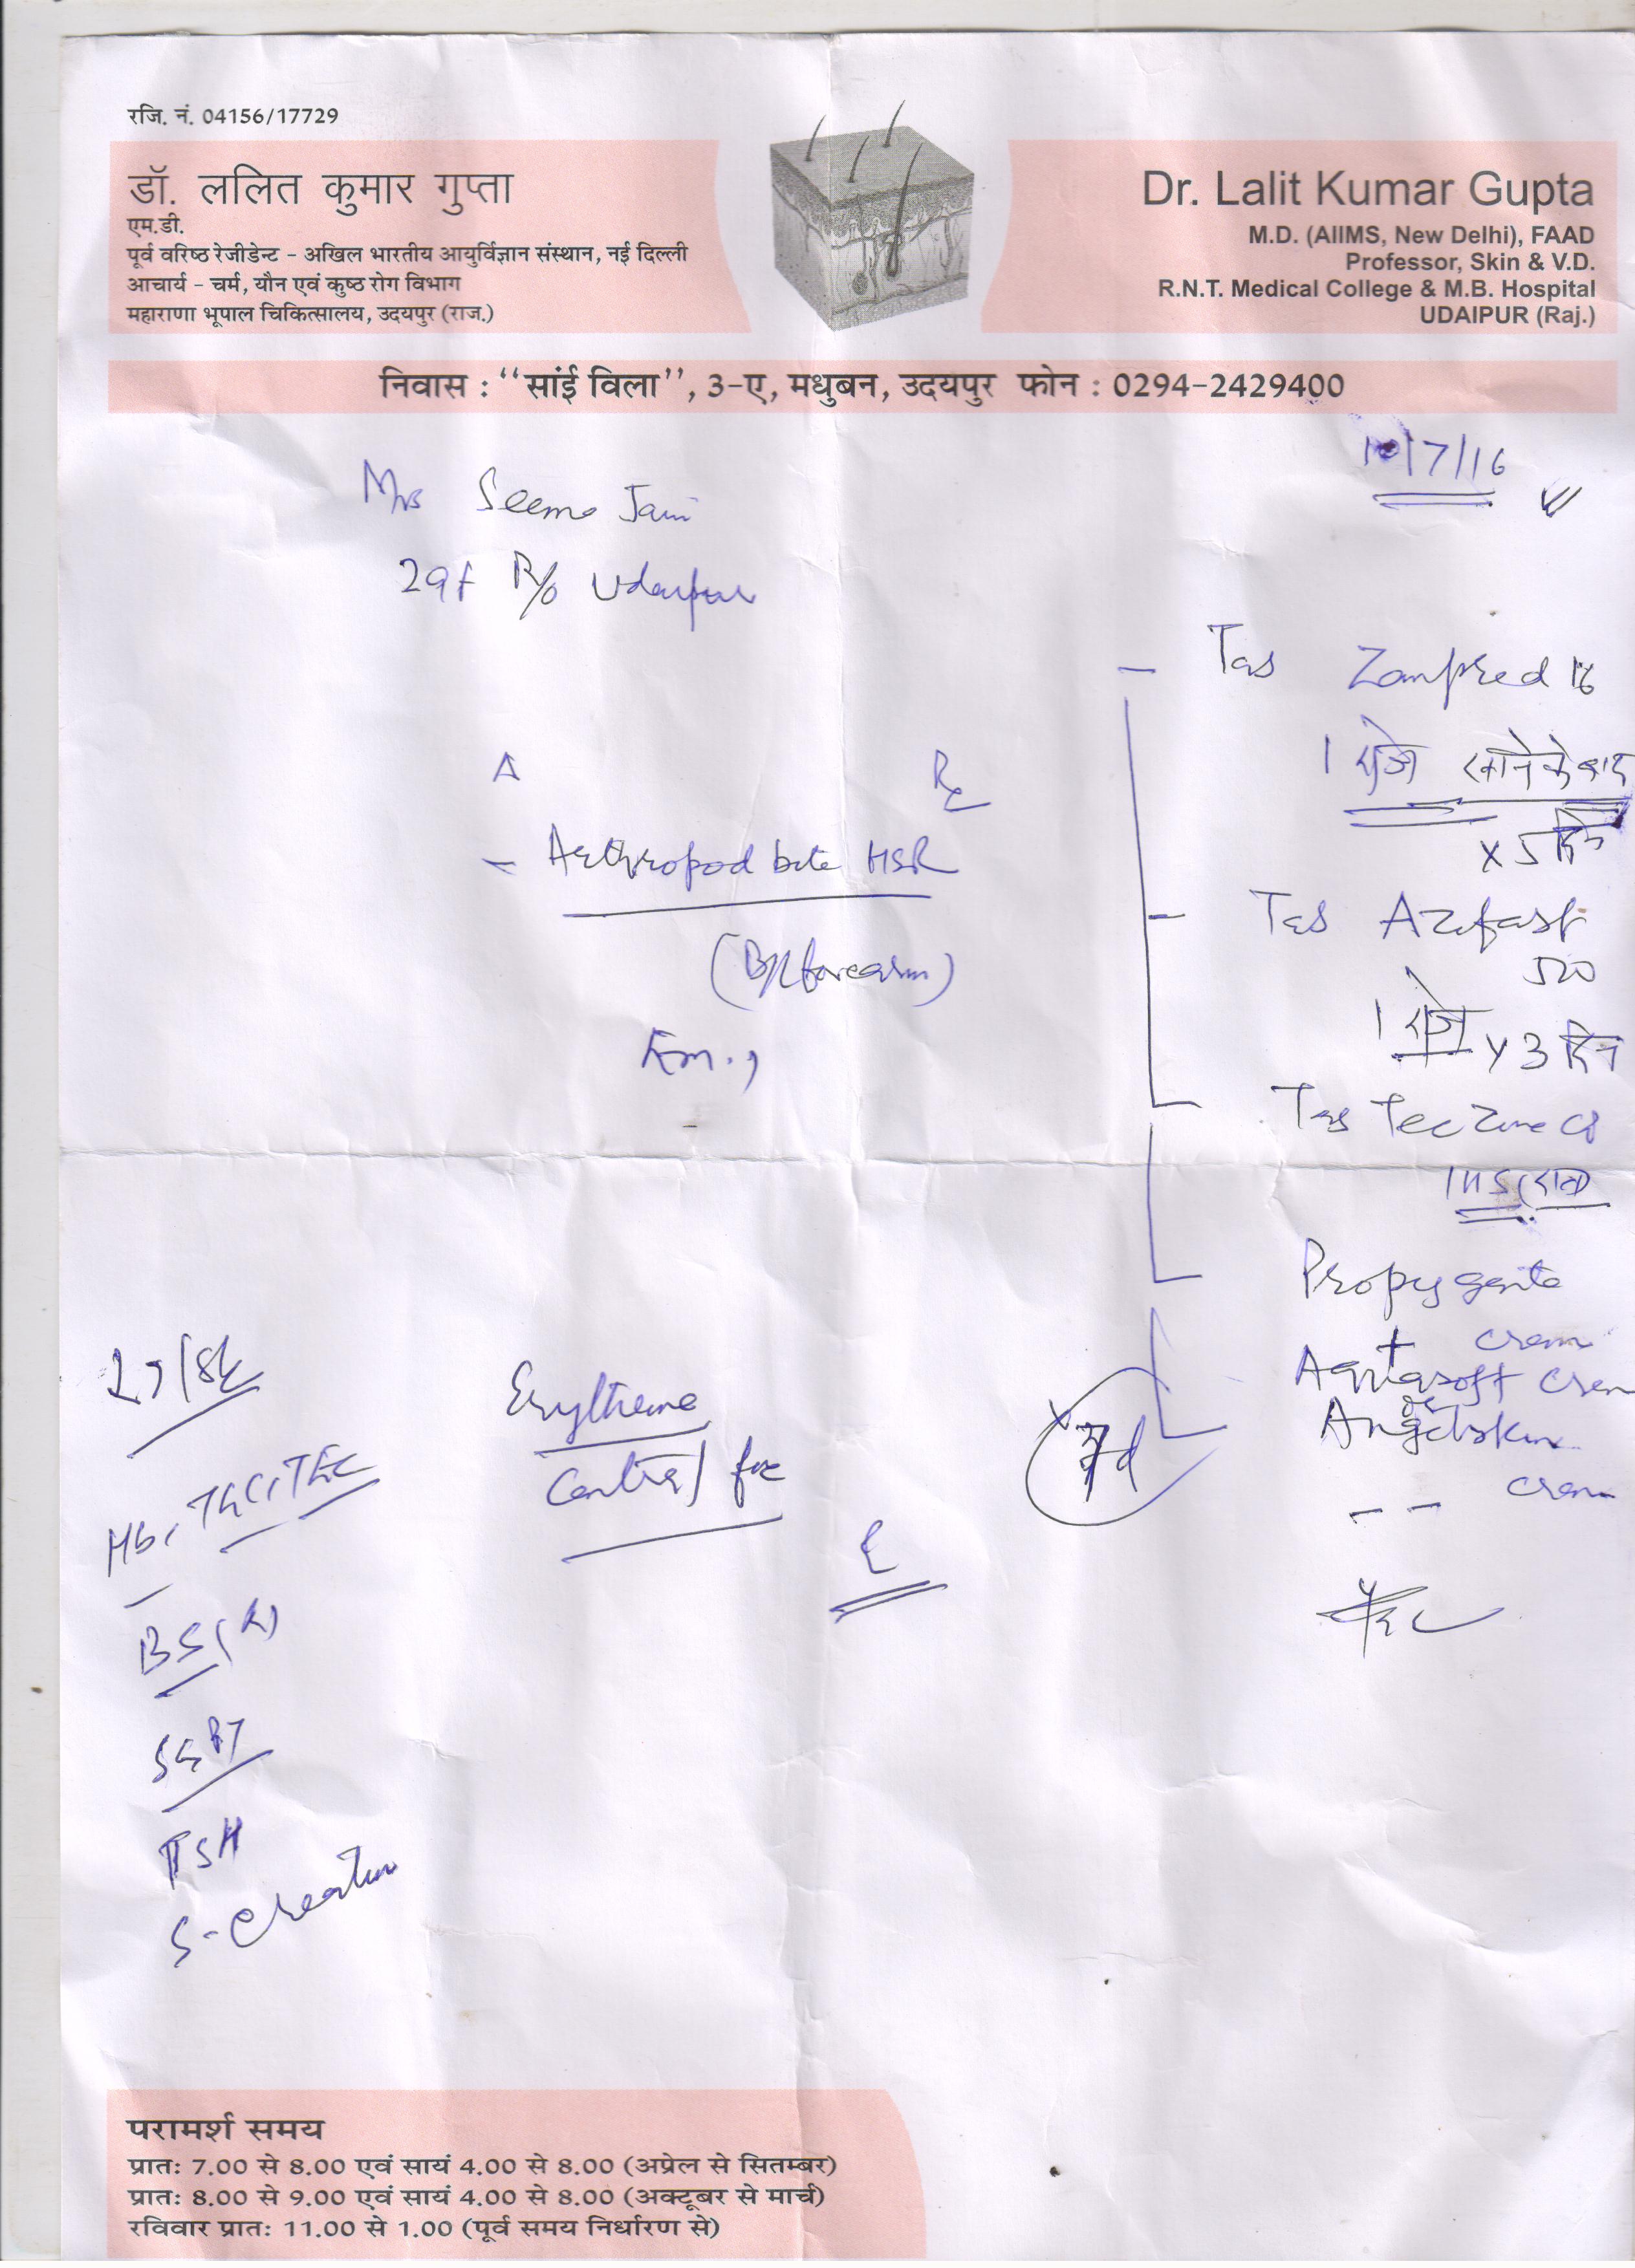 रजि. नं. 04156/17729
डॉ. ललित कुमार गुप्ता
एम.डी.
पूर्व वरिष्ठ रेजीडेन्ट - अखिल भारतीय आयुर्विज्ञान संस्थान, नई दिल्ली
आचार्य - चर्म, यौन एवं कुष्ठ रोग विभाग
महाराणा भूपाल चिकित्सालय, उदयपुर (राज.)
Dr. Lalit Kumar Gupta
M.D. (AIIMS, New Delhi), FAAD
Professor, Skin & V.D.
R.N.T. Medical College & M.B. Hospital
UDAIPUR (Raj.)
निवास : "सांई विला", 3-ए, मधुबन, उदयपुर फोन : 0294-2429400
/7/16
Mrs Seema Jain
29f R/o Udaipur
Δ
- Arthropod bite HSR
(B/L forearm)
Rx
- Tab Zempred 16
1 रोज खाने के बाद
x 5 दिन
- Tab Azifast
500
1 रोज x 3 दिन
Tab Teczine
1 HS (रात)
cream
+
cream
cream
x 7d
Erythema
Central face
Hb, TLC,
BS (R)
SGPT
TSH
S-Creatin
परामर्श समय
प्रातः 7.00 से 8.00 एवं सायं 4.00 से 8.00 (अप्रेल से सितम्बर)
प्रातः 8.00 से 9.00 एवं सायं 4.00 से 8.00 (अक्टूबर से मार्च)
रविवार प्रातः 11.00 से 1.00 (पूर्व समय निर्धारण से)